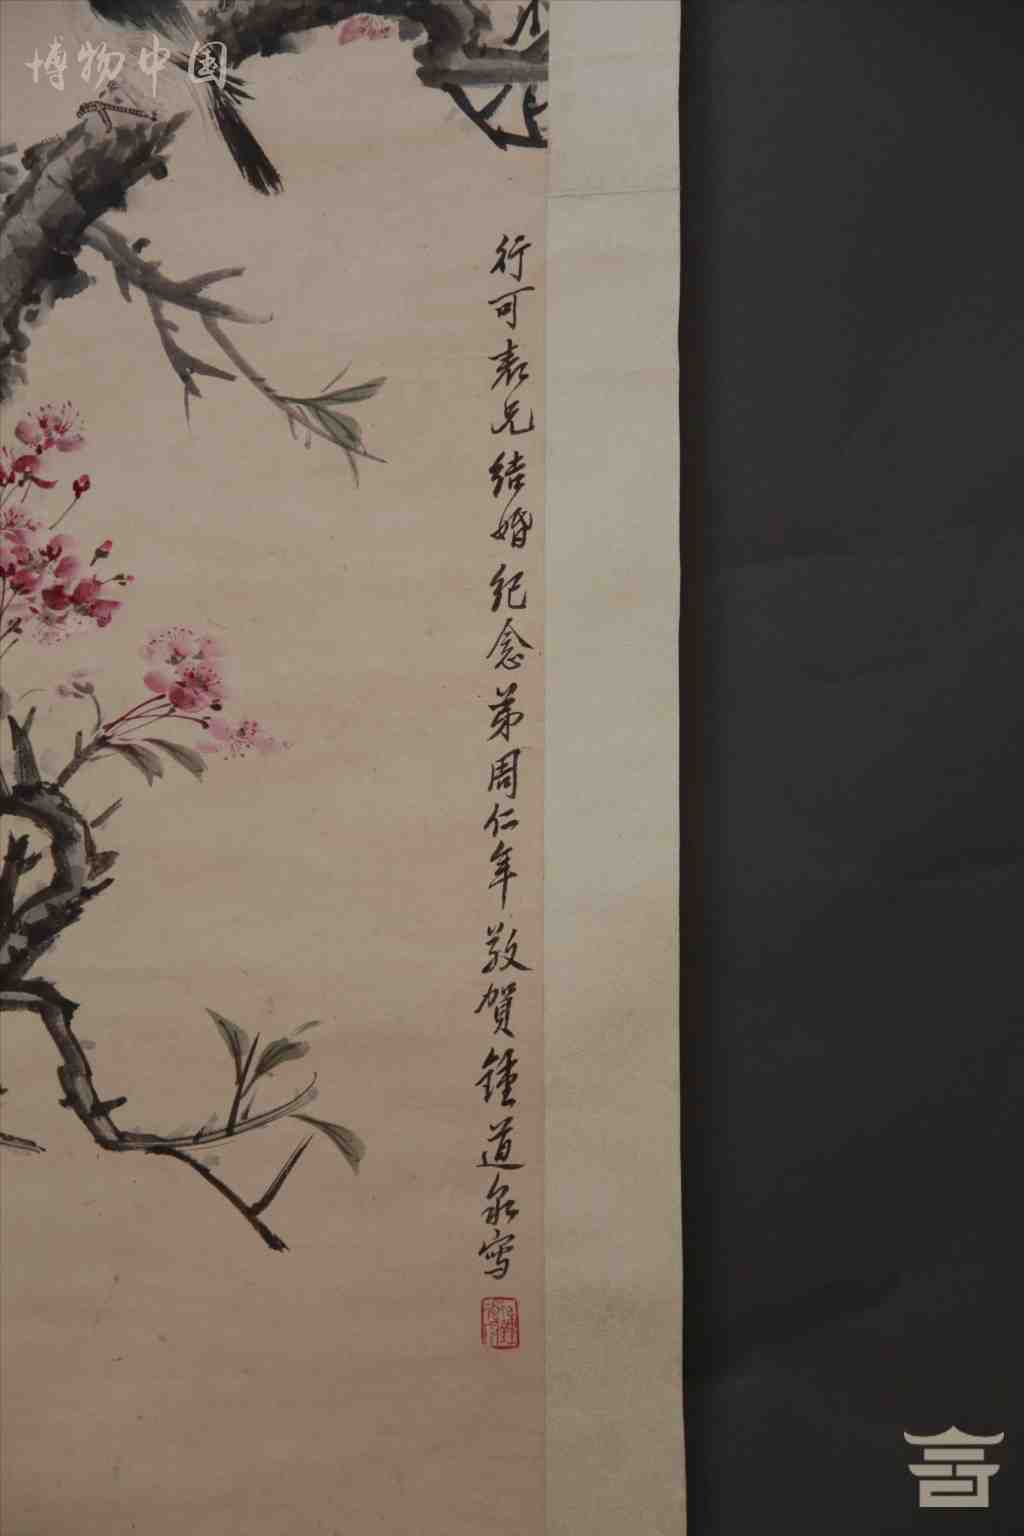 博物中国
行可表兄结婚纪念弟周仁年敬贺锺道泉写